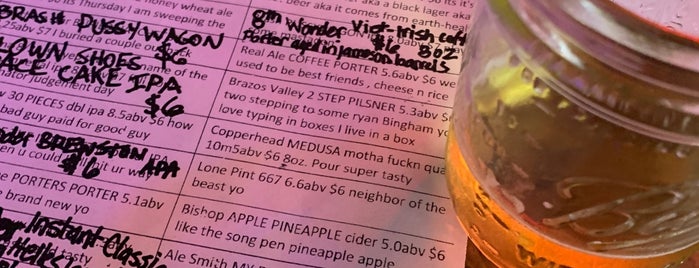 honey wheat ale
so its Thursday I am sweeping the
BRASH PUSSYWAGON
.2abv $7 I buried a couple
OWN SHOES $6
ACE CAKE IPA
$6
judgement day
w 30 PIECES dbl ipa 8.5abv $6 how
bad guy paid for good guy
BREWSTON IPA
$6
n u could
ur wa
e PORTERS PORTER 5.1abv
e brand new yo
Instant Classic
Hells
tasty
aka a black lager aka
beer aka it comes from earth-heal
8th Wonder Viet-Irish coff
porter aged in jameson barrels $6 8oz
Real Ale COFFEE PORTER 5.6abv $6 we
used to be best friends , cheese n rice
Brazos Valley 2 STEP PILSNER 5.3abv $
two stepping to some ryan Bingham yo
love typing in boxes I live in a box
Copperhead MEDUSA motha fuckn qua
10m5abv $6 8oz. Pour super tasty
Lone Pint 667 6.6abv $6 neighbor of the
beast yo
Bishop APPLE PINEAPPLE cider 5.0abv $6
like the song pen pineapple apple
Ale Smith MY